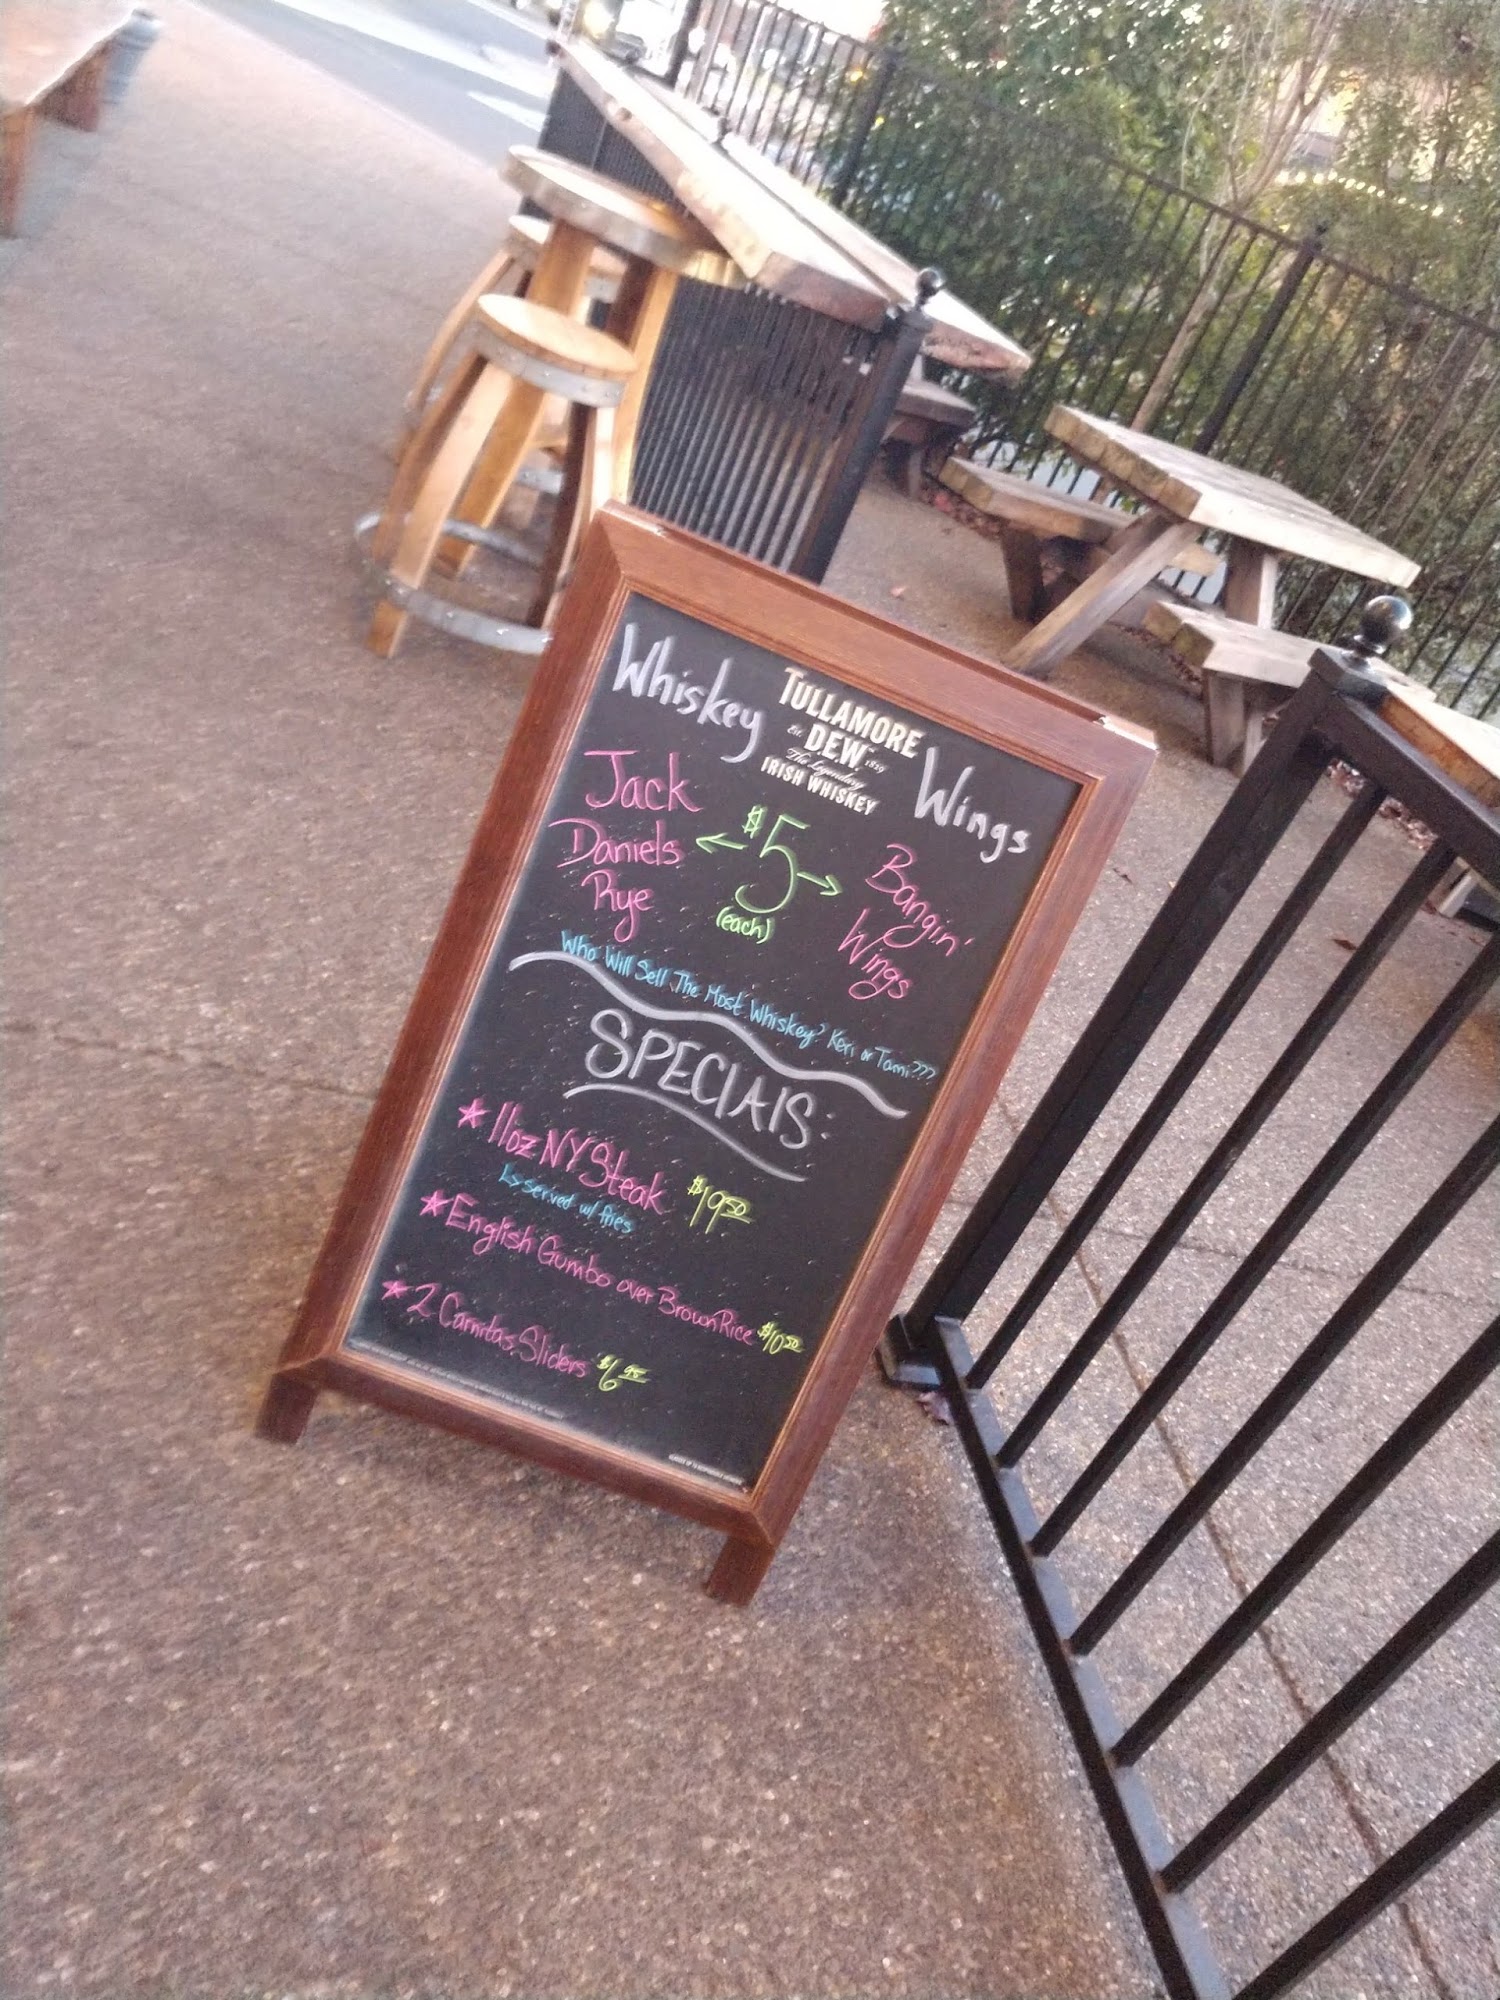 Whiskey
TULLAMORE
Est. D.E.W. 1829
The Legendary
IRISH WHISKEY
Wings
Jack
Daniels
Rye
$5
(each)
Bangin'
Wings
Who Will Sell The Most Whiskey? Keri or Tami???
SPECIAlS:
★ 11oz NY Steak $19.50
↳ served w/ fries
★ English Gumbo over Brown Rice $10.50
★ 2 Carnitas Sliders $6.95